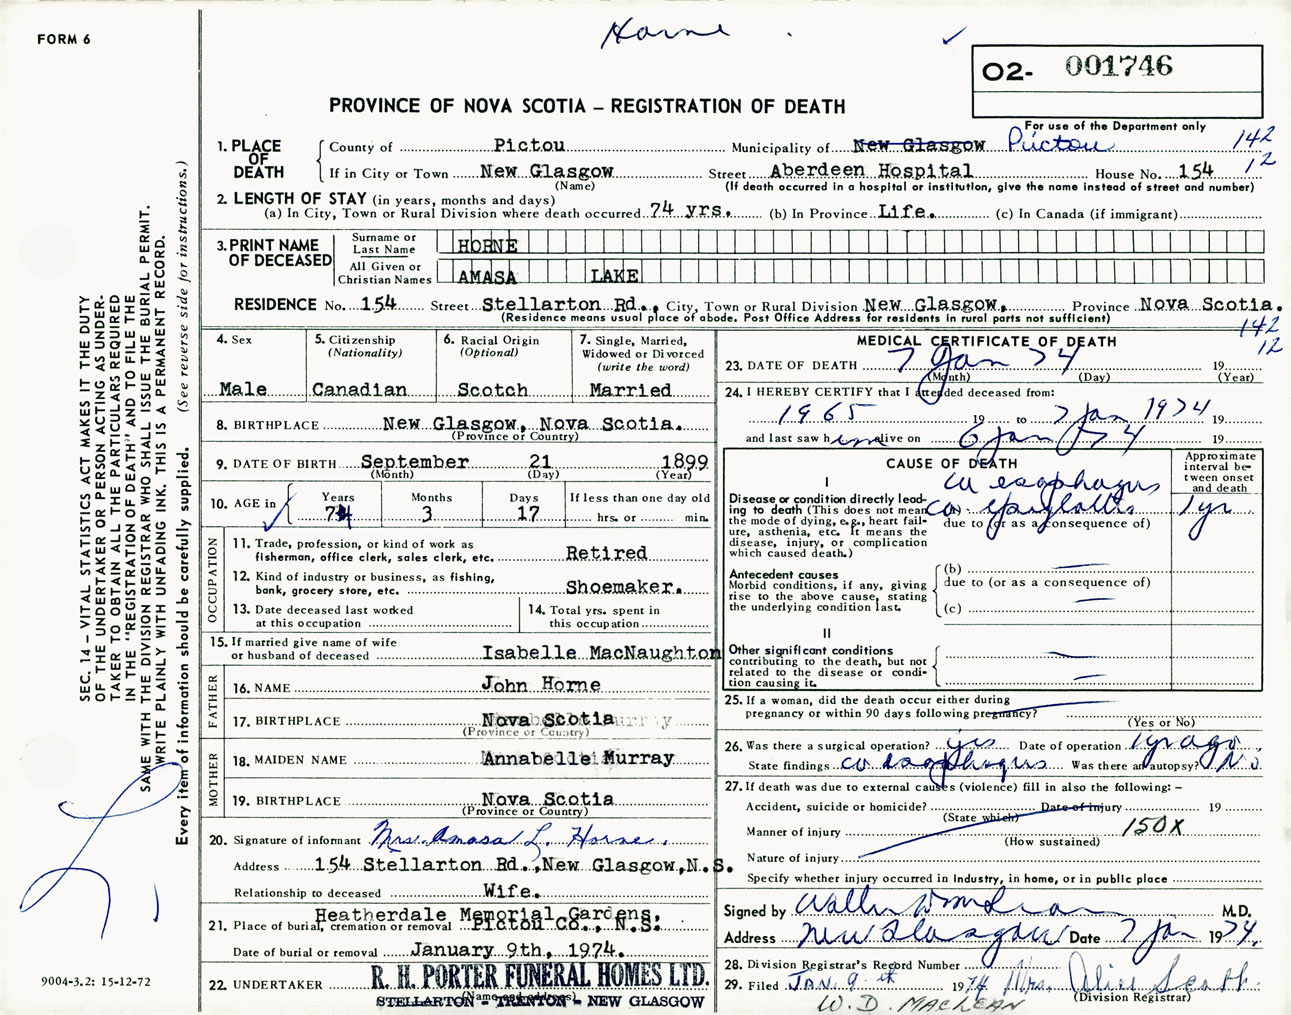 Horne
FORM 6
O2- 001746
PROVINCE OF NOVA SCOTIA – REGISTRATION OF DEATH
For use of the Department only
1. PLACE OF DEATH
County of Pictou Municipality of New Glasgow Pictou 142
If in City or Town New Glasgow Street Aberdeen Hospital House No. 154 12
(Name) (If death occurred in a hospital or institution, give the name instead of street and number)
2. LENGTH OF STAY (in years, months and days)
(a) In City, Town or Rural Division where death occurred 74 yrs. (b) In Province Life. (c) In Canada (if immigrant)
3. PRINT NAME OF DECEASED
Surname or Last Name HORNE
All Given or Christian Names AMASA LAKE
RESIDENCE No. 154 Street Stellarton Rd., City, Town or Rural Division New Glasgow, Province Nova Scotia.
(Residence means usual place of abode. Post Office Address for residents in rural parts not sufficient)
142
12
4. Sex
Male
5. Citizenship
(Nationality)
Canadian
6. Racial Origin
(Optional)
Scotch
7. Single, Married,
Widowed or Divorced
(write the word)
Married
8. BIRTHPLACE New Glasgow, Nova Scotia.
(Province or Country)
9. DATE OF BIRTH September 21 1899
(Month) (Day) (Year)
10. AGE in
Years Months Days If less than one day old
74 3 17 hrs. or min.
OCCUPATION
11. Trade, profession, or kind of work as
fisherman, office clerk, sales clerk, etc. Retired
12. Kind of industry or business, as fishing,
bank, grocery store, etc. Shoemaker.
13. Date deceased last worked
at this occupation
14. Total yrs. spent in
this occupation
15. If married give name of wife
or husband of deceased Isabelle MacNaughton
FATHER
16. NAME John Horne
17. BIRTHPLACE Nova Scotia
(Province or Country)
MOTHER
18. MAIDEN NAME Annabelle Murray
19. BIRTHPLACE Nova Scotia
(Province or Country)
20. Signature of informant Mrs. Amasa L. Horne.
Address 154 Stellarton Rd., New Glasgow, N.S.
Relationship to deceased Wife.
21. Place of burial, cremation or removal Heatherdale Memorial Gardens,
Pictou Co., N.S.
Date of burial or removal January 9th, 1974.
22. UNDERTAKER R. H. PORTER FUNERAL HOMES LTD.
(Name and address)
STELLARTON - TRENTON - NEW GLASGOW
MEDICAL CERTIFICATE OF DEATH
23. DATE OF DEATH 7 Jan 74 19
(Month) (Day) (Year)
24. I HEREBY CERTIFY that I attended deceased from:
1965 19 to 7 Jan 1974 19
and last saw him alive on 6 Jan 74 19
CAUSE OF DEATH
Approximate interval between onset and death
I
ca esophagus
Disease or condition directly leading to death (This does not mean the mode of dying, e.g., heart failure, asthenia, etc. It means the disease, injury, or complication which caused death.)
ca epiglottis 1 yr
due to (or as a consequence of)
Antecedent causes
Morbid conditions, if any, giving rise to the above cause, stating the underlying condition last.
(b)
due to (or as a consequence of)
(c)
II
Other significant conditions
contributing to the death, but not related to the disease or condition causing it.
25. If a woman, did the death occur either during
pregnancy or within 90 days following pregnancy?
(Yes or No)
26. Was there a surgical operation? yes Date of operation 1 yr ago.
State findings ca esophagus Was there an autopsy? No.
27. If death was due to external causes (violence) fill in also the following: –
Accident, suicide or homicide? Date of injury 19
(State which)
Manner of injury 150X
(How sustained)
Nature of injury
Specify whether injury occurred in industry, in home, or in public place
Signed by M.D.
Address New Glasgow Date 7 Jan 1974.
28. Division Registrar's Record Number
29. Filed JAN. 9th 1974 Mrs. Alice Scott.
(Division Registrar)
W. D. MACLEAN
SEC. 14 – VITAL STATISTICS ACT MAKES IT THE DUTY
OF THE UNDERTAKER OR PERSON ACTING AS UNDERTAKER TO OBTAIN ALL THE PARTICULARS REQUIRED
IN THE "REGISTRATION OF DEATH" AND TO FILE THE
SAME WITH THE DIVISION REGISTRAR WHO SHALL ISSUE THE BURIAL PERMIT.
WRITE PLAINLY WITH UNFADING INK. THIS IS A PERMANENT RECORD.
Every item of information should be carefully supplied. (See reverse side for instructions.)
9004-3.2: 15-12-72